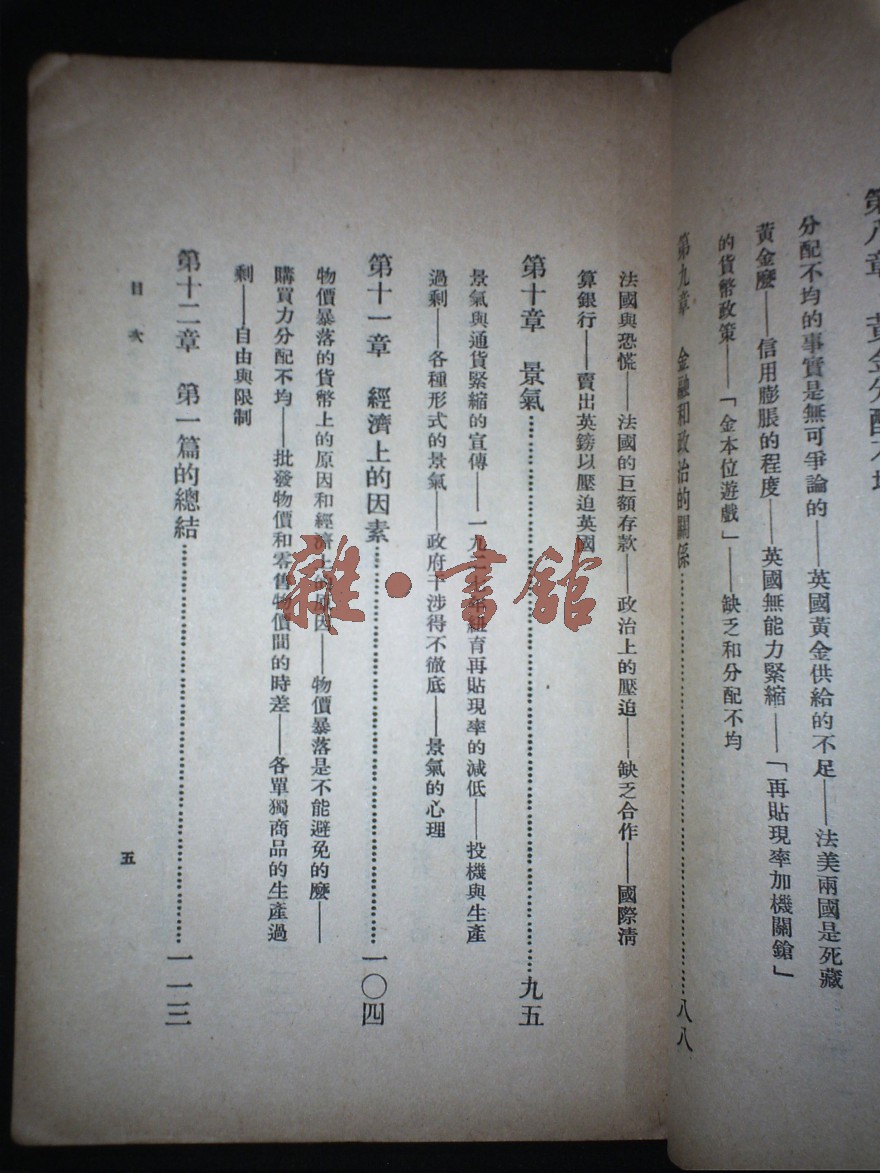 第八章 黃金分配不均
分配不均的事實是無可爭論的——英國黃金供給的不足——法美兩國是死藏
黃金麼——信用膨脹的程度——英國無能力緊縮——「再貼現率加機關鎗」
的貨幣政策——「金本位遊戲」——缺乏和分配不均
第九章 金融和政治的關係……八八
法國與恐慌——法國的巨額存款——政治上的壓迫——缺乏合作——國際淸
算銀行——賣出英鎊以壓迫英國
第十章 景氣……九五
景氣與通貨緊縮的宣傳——一九二七年紐育再貼現率的減低——投機與生產
過剩——各種形式的景氣——政府干涉得不徹底——景氣的心理
第十一章 經濟上的因素……一〇四
物價暴落的貨幣上的原因和經濟上的原因——物價暴落是不能避免的麼——
購買力分配不均——批發物價和零售物價間的時差——各單獨商品的生產過
剩——自由與限制
第十二章 第一篇的總結……一一三
目次
五
雜·書舘